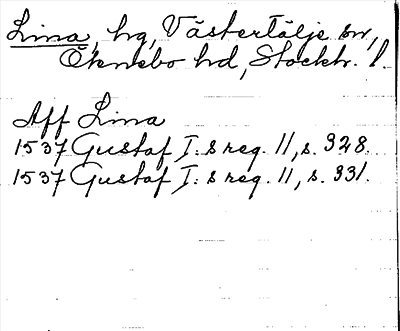 Lina, hg, Västertälje sn,
Öknebo hd, Stockh. l.
Aff Lina
1537 Gustaf I:s reg. 11, s. 328.
1537 Gustaf I:s reg. 11, s. 331.